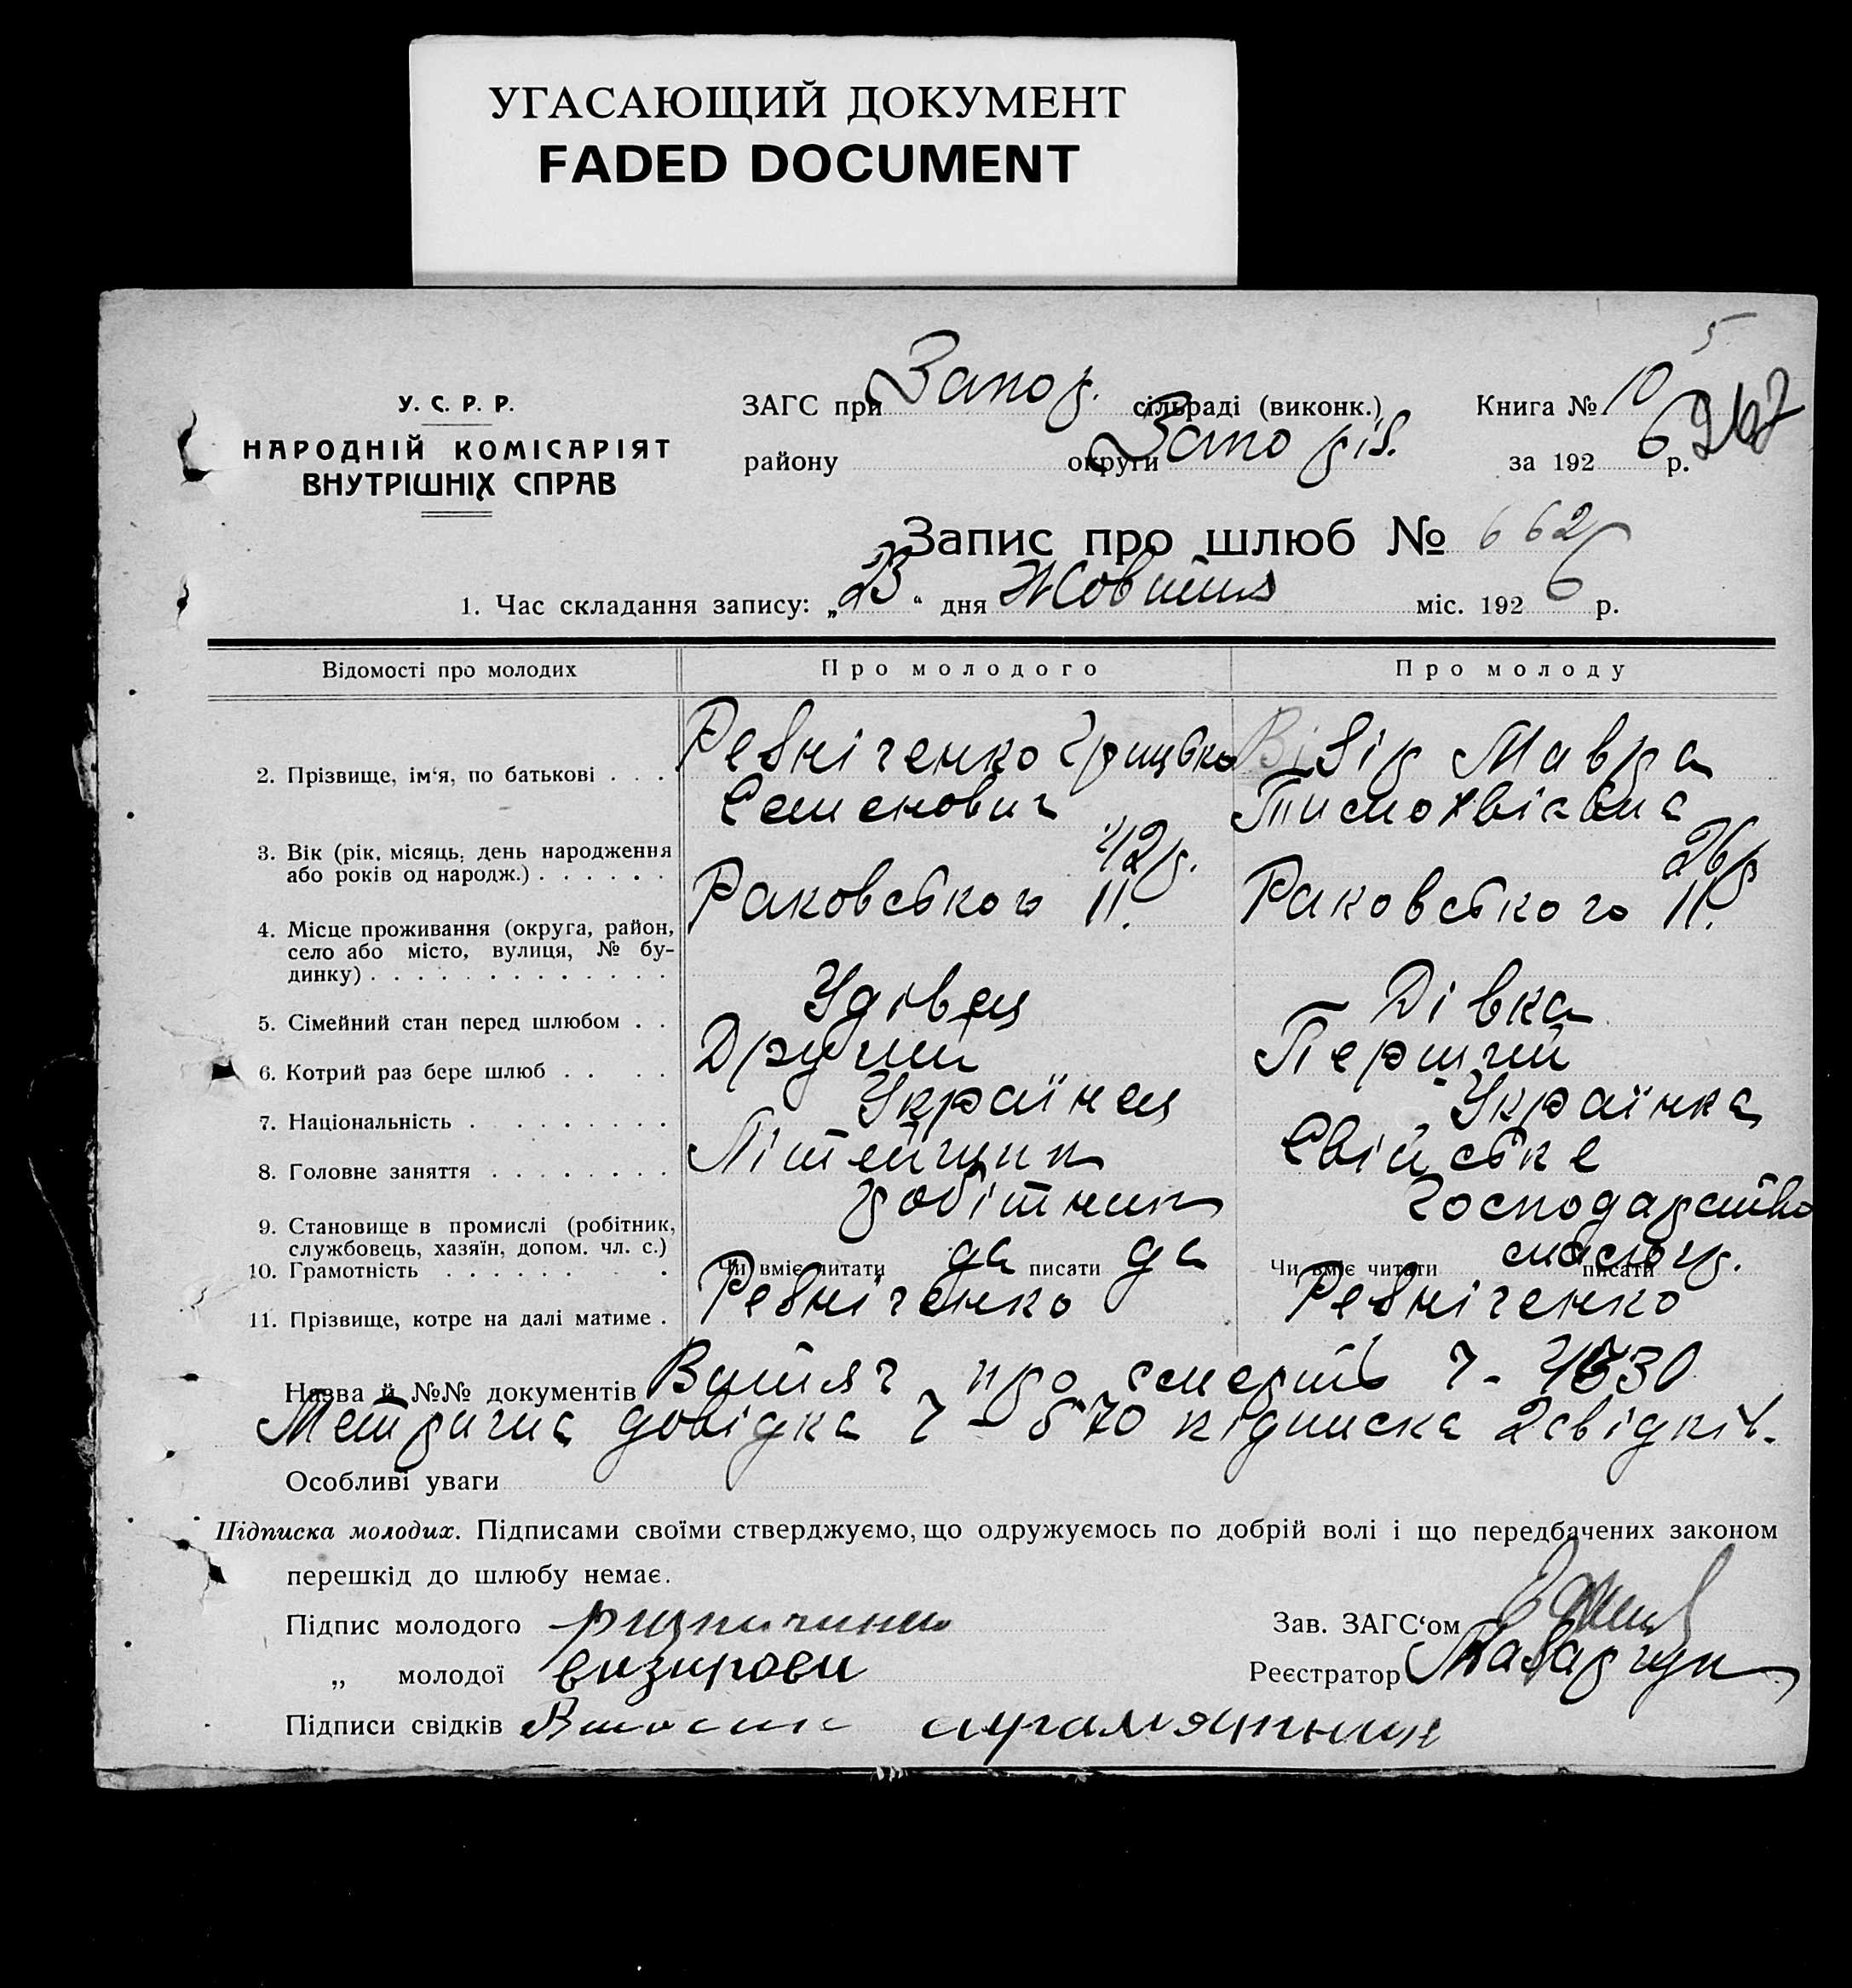 УГАСАЮЩИЙ ДОКУМЕНТ
FADED DOCUMENT
5
У. С. Р. Р.
НАРОДНІЙ КОМІСАРІЯТ
ВНУТРІШНІХ СПРАВ
ЗАГС при Запор. сільраді (виконк.) Книга № 10
району округи Запоріз. за 1926 р.
267
Запис про шлюб № 662
1. Час складання запису: „23“ дня Жовтня міс. 1926 р.
Відомості про молодих Про молодого Про молоду
2. Прізвище, ім‘я, по батькові . . . Ревніченко Грицько Візір Мавра
Семенович Тимохвієвна
3. Вік (рік, місяць, день народження 42р. 26р
або років од народж.) . . . . . .
4. Місце проживання (округа, район, Раковського 11. Раковського 11.
село або місто, вулиця, № бу-
динку) . . . . . . . . . . . . .
5. Сімейний стан перед шлюбом . . Удівец Дівка
6. Котрий раз бере шлюб . . . . Другий Перший
7. Національність . . . . . . . . . Українец Українка
8. Головне заняття . . . . . . . . Літейщик Свійське
9. Становище в промислі (робітник, робітник господарство
службовець, хазяїн, допом. чл. с.)
10. Грамотність . . . . . . . . Чи вміє читати да писати да Чи вміє читати писати
11. Прізвище, котре на далі матиме . Ревніченко Ревніченко
Назва й №№ документів Витяг про смерть
Метрична довідка ч - 570 підписка 2 свідків.
Особливі уваги
Підписка молодих. Підписами своїми стверджуємо, що одружуємось по добрій волі і що передбачених законом
перешкід до шлюбу немає.
Підпис молодого Зав. ЗАГС‘ом
„ молодої Реєстратор
Підписи свідків